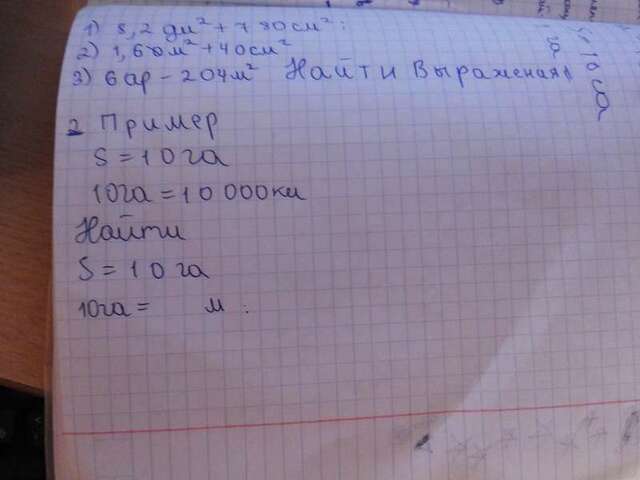 1) 8,2 дм² + 780 см² :
2) 1,60 м² + 40 см²
3) 6 ар - 204 м² Найти Выражения
2 Пример
S = 10 га
10 га = 10 000 км
Найти
S = 10 га
10 га = м :